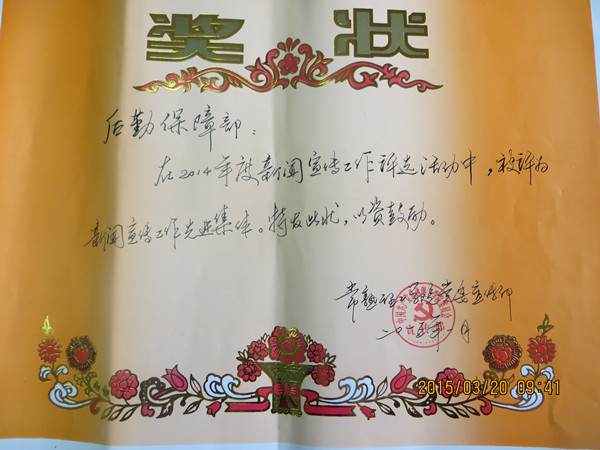 奖状
后勤保障部：
在2014年度新闻宣传工作评选活动中，被评为
新闻宣传工作先进集体。特发此状，以资鼓励。
常熟理工学院党委宣传部
二〇一五年一月
2015/03/20 09:41